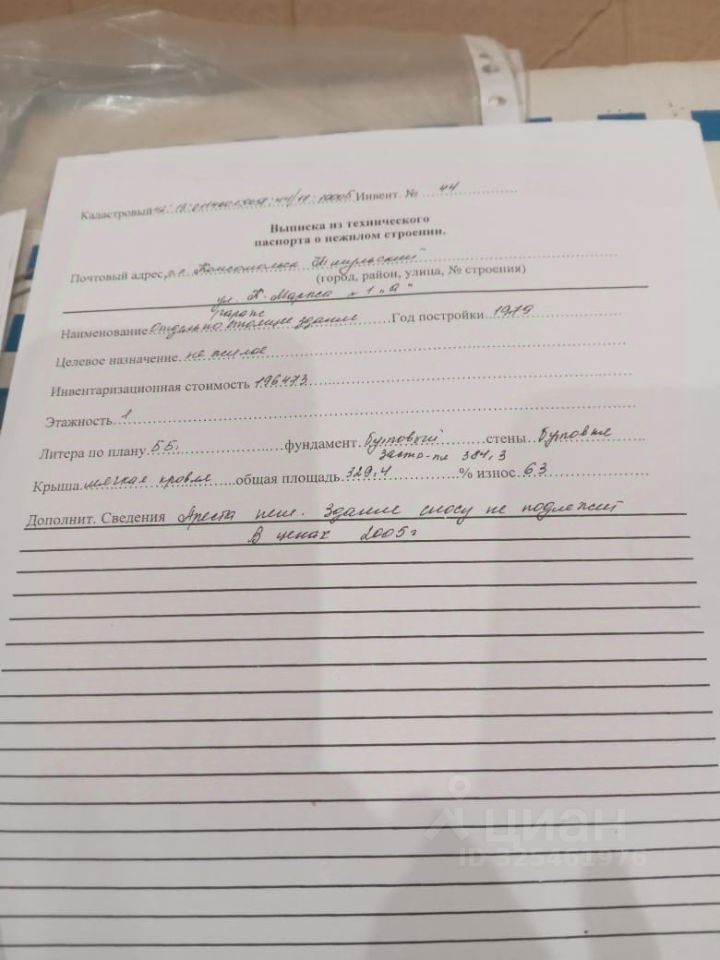 Кадастровый Инвент. № 44
Выписка из технического
паспорта о нежилом строении.
Почтовый адрес
(город, район, улица, № строения)
ул. К. Маркса № 1 „а"
гараж
Наименование отдельно стоящее здание Год постройки 1979
Целевое назначение не жилое
Инвентаризационная стоимость 196473
Этажность 1
Литера по плану ББ. фундамент бутовый стены бутовые
застр-пл 384,3
Крыша мягкая кровля общая площадь 329,4 % износ 63
Дополнит. Сведения Ареста нет. Здание сносу не подлежит
В ценах 2005г
циан
ID 325461976